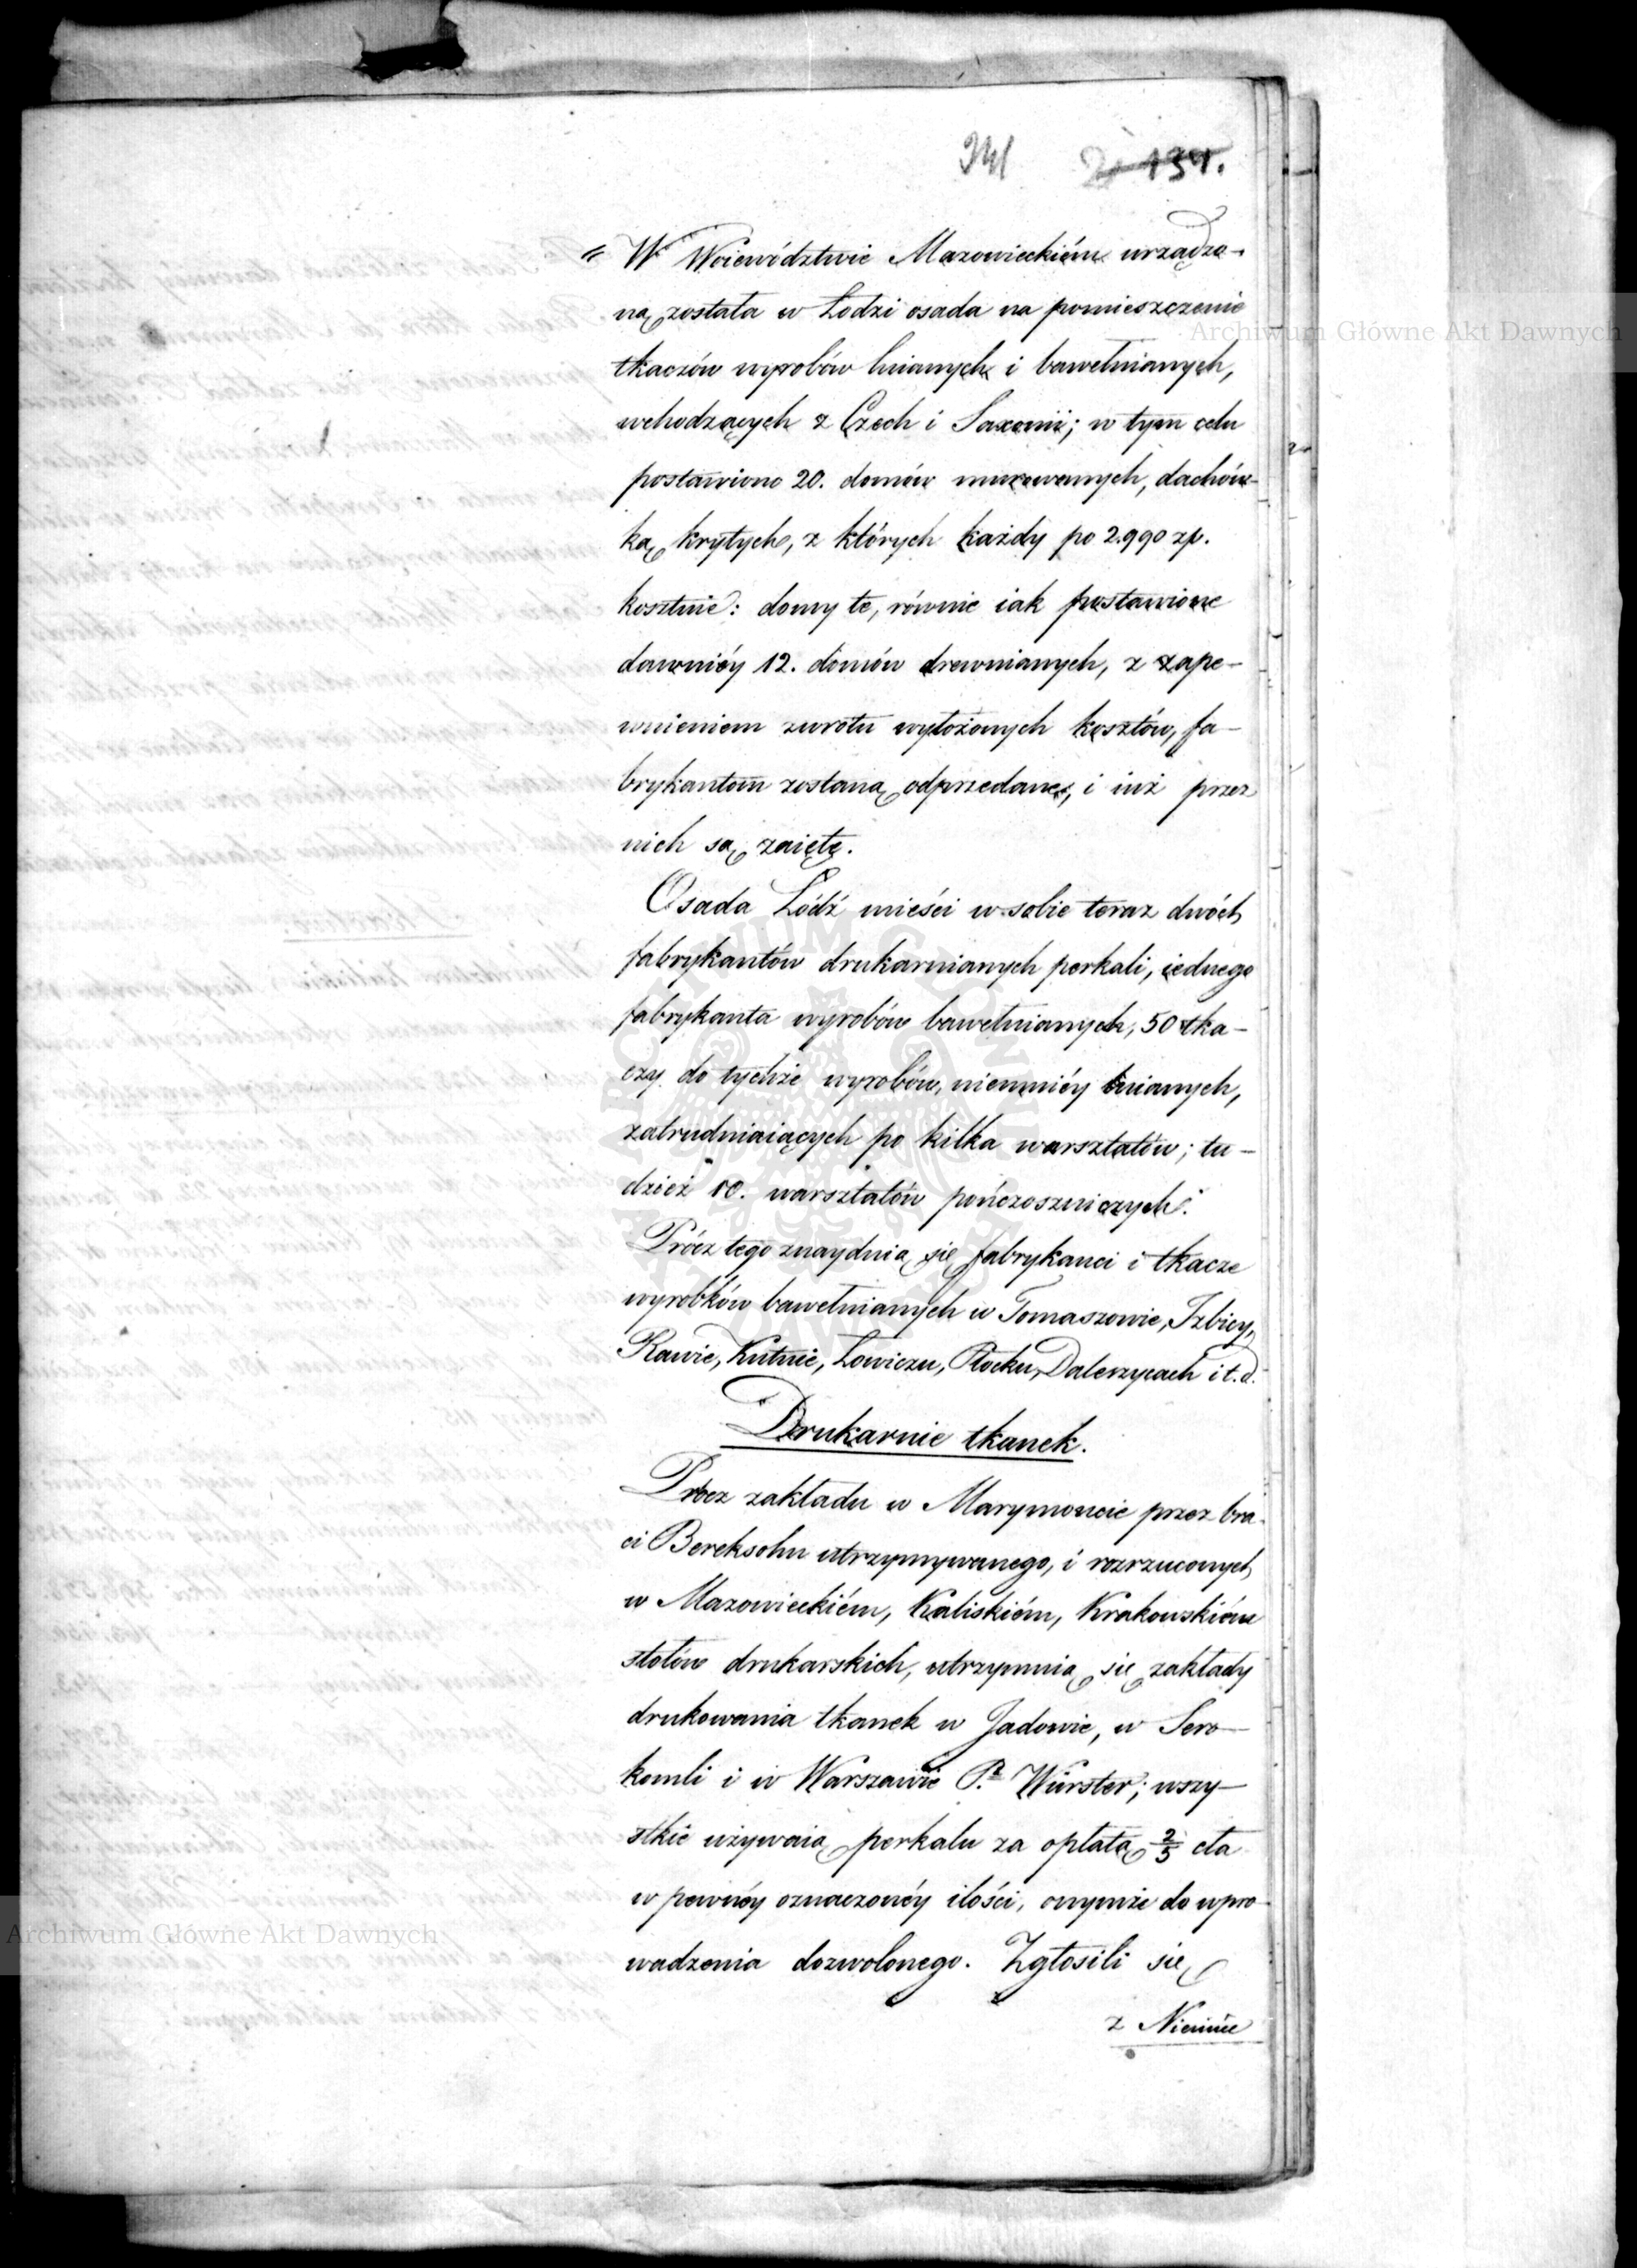 241 134.
W Woiewództwie Mazowieckiém urządzo-
ną została w Łodzi osada na pomieszczenie
tkaczów wyrobów lnianych i bawełnianych,
wchodzących z Czech i Saxonii; w tym celu
postawiono 20. domów murowanych, dachów-
ką krytych, z których każdy po 2.990 zp.
kosztuie: domy te, równie iak postawione
dawniéy 12. domów drewnianych, z zape-
wnieniem zwrotu wyłożonych kosztów, fa-
brykantom zostaną odprzedane, i iuż przez
nich są zaięte.
Osada Łódź mieści w sobie teraz dwóch
fabrykantów drukarnianych perkali, iednego
fabrykanta wyrobów bawełnianych, 50 tka-
czy do tychże wyrobów, niemniéy lnianych,
zatrudniaiących po kilka warsztatów; tu-
dzież 10. warsztatów pończoszniczych.
Prócz tego znayduią się fabrykanci i tkacze
wyrobków bawełnianych w Tomaszowie, Izbicy,
Rawie, Kutnie, Łowiczu, Płocku, Daleszycach i t. d.
Drukarnie tkanek.
Prócz zakładu w Marymoncie przez bra-
ci Bereksohn utrzymywanego, i rozrzuconych
w Mazowieckiém, Kaliskiém, Krakowskiém
stołów drukarskich, utrzymuią się zakłady
drukowania tkanek w Jadowie, w Sero-
komli i w Warszawie P. Würster; wszy-
stkie używaią perkalu za opłatą 2/5 cła
w pewnéy oznaczonéy ilości, onymże do wpro-
wadzenia dozwolonego. Zgłosili się
z Niemiec
Archiwum Główne Akt Dawnych
Archiwum Główne Akt Dawnych